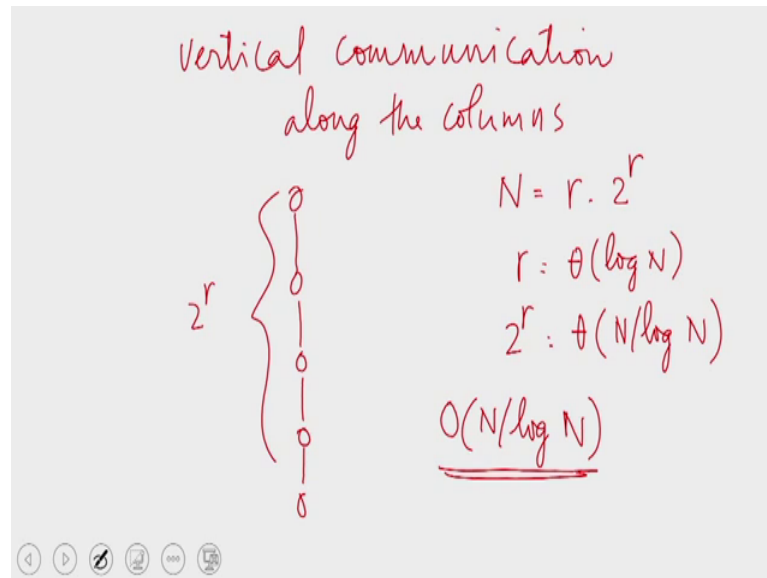 vertical communication
along the columns
N = r . 2^r
r = θ(log N)
2^r = θ(N/log N)
2^r
O(N/log N)